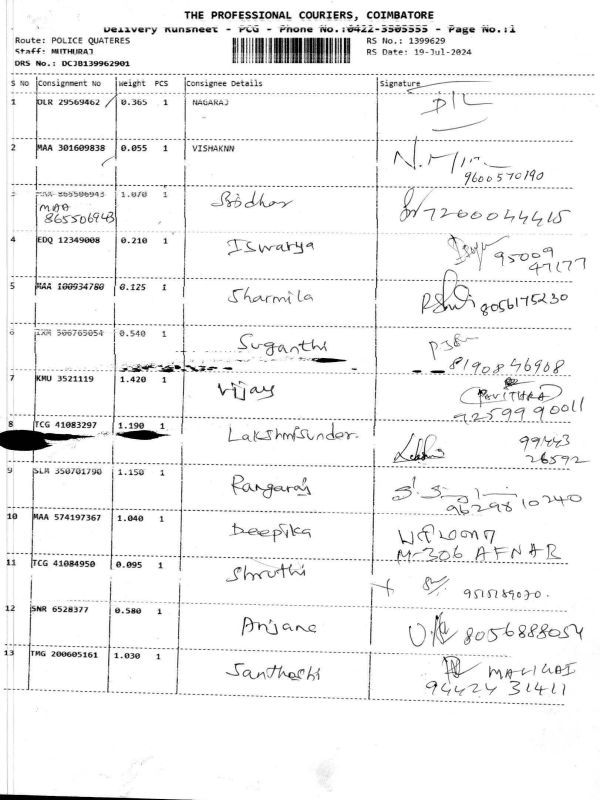 THE PROFESSIONAL COURIERS, COIMBATORE
Delivery Runsheet - PCG - Phone No.:0422-3505555 - Page No.:1
Route: POLICE QUATERES RS No.: 1399629
Staff: MUTHURAJ RS Date: 19-Jul-2024
DRS No.: DCJB139962901
S No Consignment No Weight PCS Consignee Details Signature
1 DLR 29569462 0.365 1 NAGARAJ
2 MAA 301609838 0.055 1 VISHAKNN
9600570190
3 MAA 865506943 1.070 1 Sridhar 7200044415
MAA
865506943
4 EDQ 12349008 0.210 1 Iswarya 95009
47177
5 MAA 100934780 0.125 1 Sharmila 8056175230
6 IXM 506765054 0.540 1 Suganthi
8190846908
7 KMU 3521119 1.420 1 Vijay PAVITHRA
9259990011
8 TCG 41083297 1.190 1 Lakshmisunder. 99443
26592
9 SLM 350701790 1.150 1 Rangaraj
9629810240
10 MAA 574197367 1.040 1 Deepika
M-306 AFNAR
11 TCG 41084950 0.095 1 Shruthi
9515189070.
12 SNR 6528377 0.580 1 Anjana 8056888054
13 TMG 200605161 1.030 1 Santhoshi MALIGAI
94424 31411